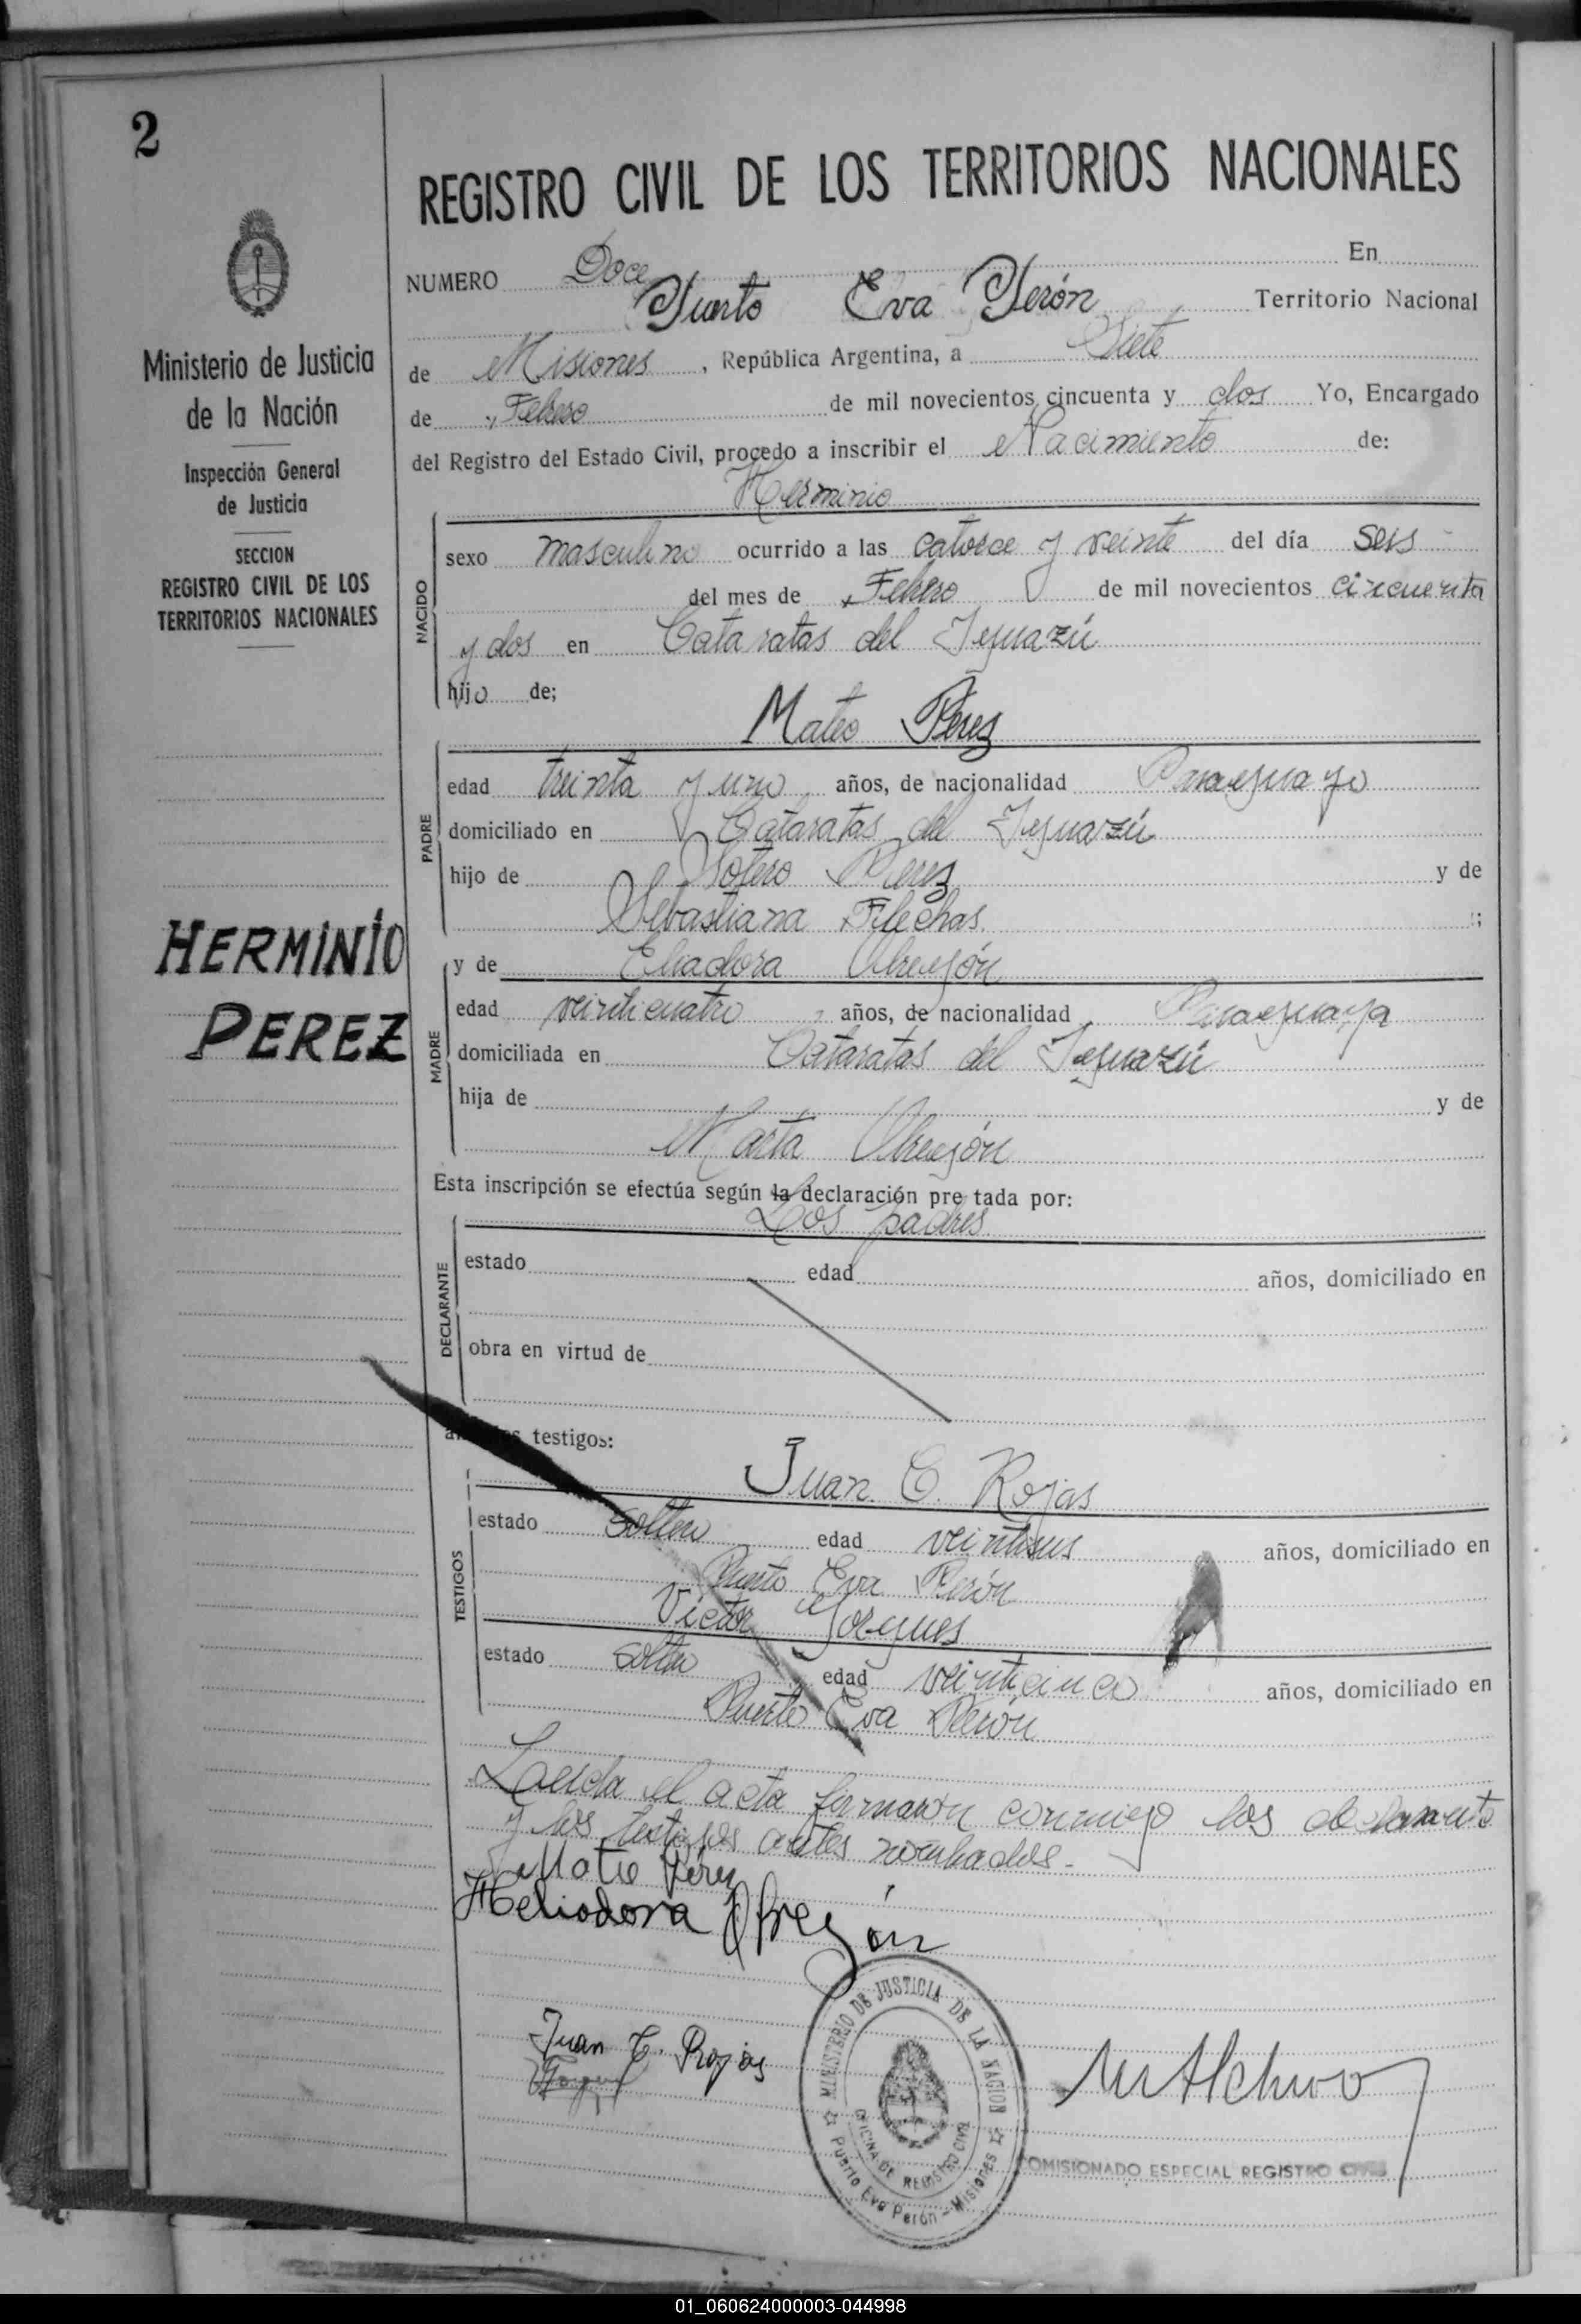 2
REGISTRO CIVIL DE LOS TERRITORIOS NACIONALES
Ministerio de Justicia
de la Nación
Inspección General
de Justicia
SECCION
REGISTRO CIVIL DE LOS
TERRITORIOS NACIONALES
HERMINIO
PEREZ
NUMERO Doce En
Puerto Eva Perón Territorio Nacional
de Misiones, República Argentina, a Siete
de Febrero de mil novecientos cincuenta y dos Yo, Encargado
del Registro del Estado Civil, procedo a inscribir el Nacimiento de:
Herminio
NACIDO
sexo masculino ocurrido a las catorce y veinte del día seis
del mes de Febrero de mil novecientos cincuenta
y dos en Cataratas del Iguazú
hijo de;
Mateo Pérez
PADRE
edad treinta y uno años, de nacionalidad Paraguayo
domiciliado en Cataratas del Iguazú
hijo de Sotero Perez y de
Sebastiana Flechas ;
MADRE
y de Eliadora Obregón
edad veinticuatro, años, de nacionalidad Paraguaya
domiciliada en Cataratas del Iguazú
hija de y de
Marta Obregón
Esta inscripción se efectúa según la declaración pre tada por:
Los padres
DECLARANTE
estado edad años, domiciliado en
obra en virtud de
testigos:
Juan C. Rojas
TESTIGOS
estado soltero edad veintiseis años, domiciliado en
Puerto Eva Perón
Victor Jorgues
estado soltero edad veinticinco años, domiciliado en
Puerto Eva Perón
Laeida el acta firmaron conmigo los declarante
y los testigos antes nombrados.-
Mateo Pérez
Heliodora Obregón
Juan C. Rojas
MINISTERIO DE JUSTICIA DE LA NACION
OFICINA DE REGISTRO CIVIL
Puerto Eva Perón - Misiones
COMISIONADO ESPECIAL REGISTRO CIVIL
01_060624000003-044998